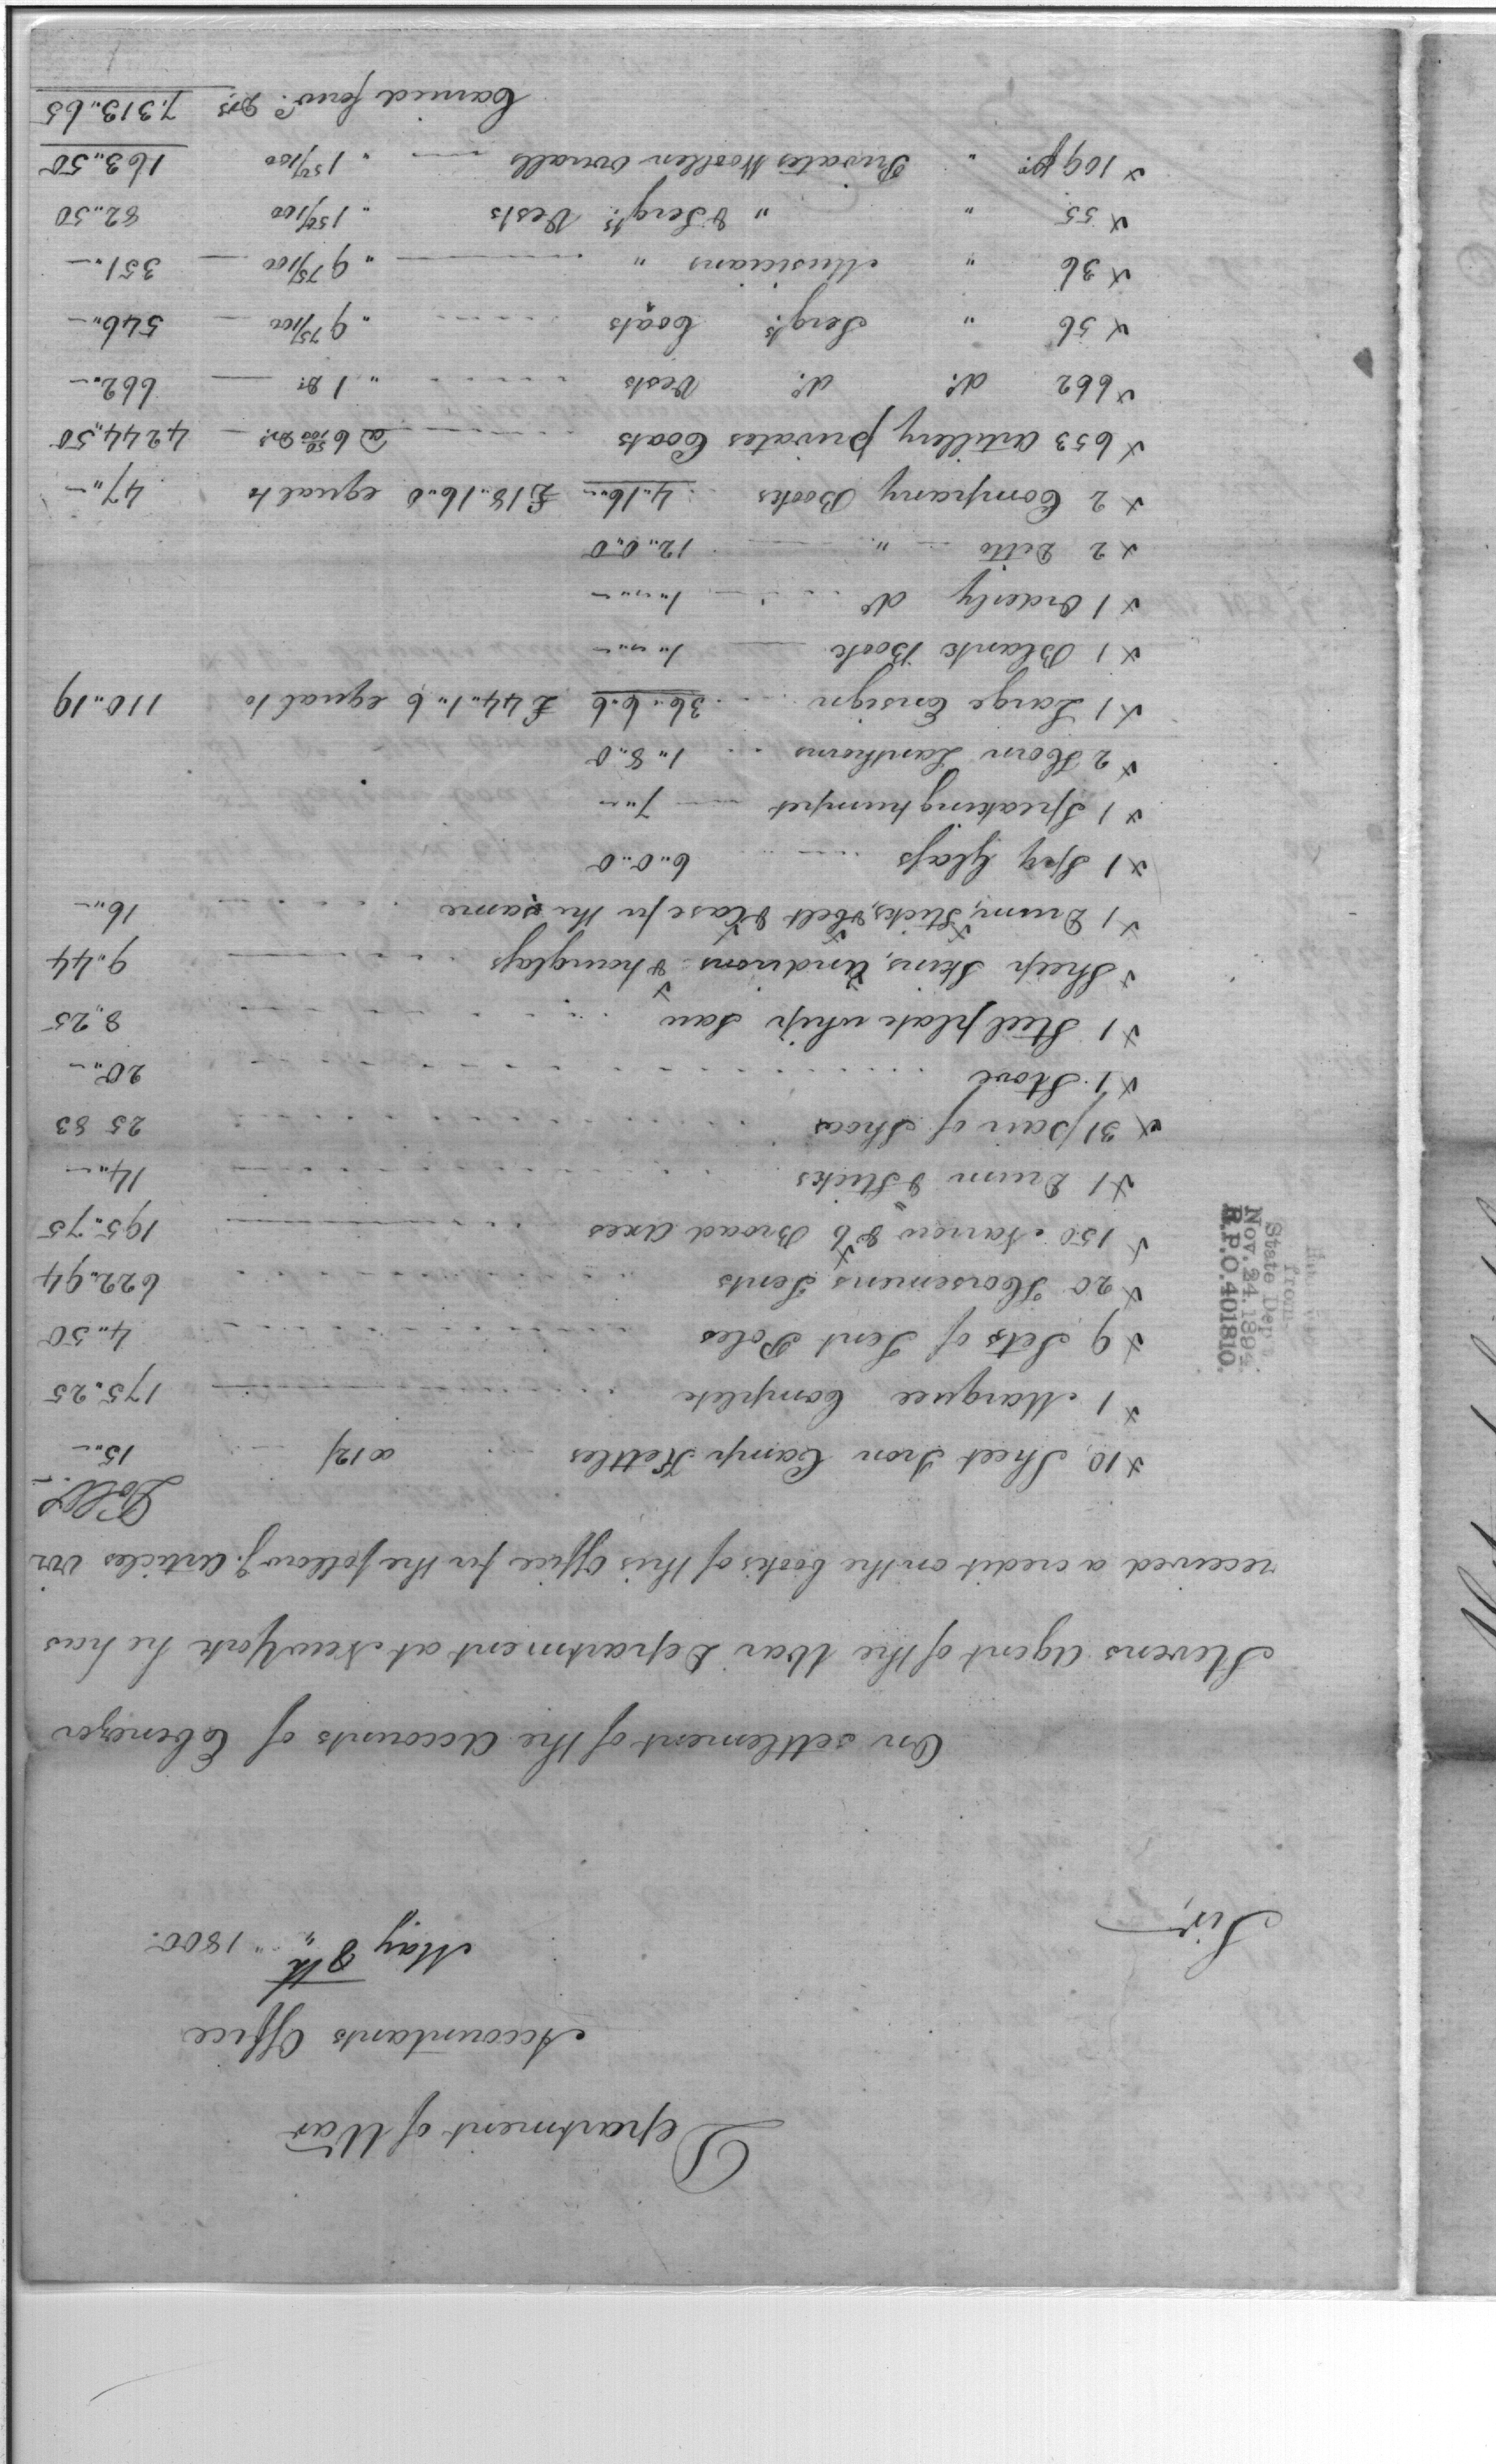 Department of War
Accountants Office
May 8th „ 1800.
Sir,
On settlement of the Accounts of Ebenezer
Stevens Agent of the War Department at New York he has
received a credit on the books of this Office for the follow.g Articles viz
Dolls.
x 10 Sheet Iron Camp Kettles a 12/ 15..—
x 1 Marquee Complete 175.25
x 9 Sets of Tent Poles 4..50
x 20 Horsemens Tents 622..94
x 150 Narrow & 6 Broad Axes 195.75
x 1 Drum & Sticks 14..—
x 31 pair of Shoes 25 83
x 1 Stove 20..—
x 1 Steel plate whip Saw 8.25
x Sheep Skins, Andirons & hourglass 9.44
x 1 Drum, Sticks, Belt & Case for the same 16..—
x 1 Spy Glass 6..0..0
x 1 Speaking trumpet 7..—
x 2 Horn Lanthorns 1..8..0
x 1 Large Ensign 36..6.6 £44..1..6 equal to 110..19
x 1 Blank Book 1..—..—
x 1 Orderly do 1..—..—
x 2 Ditto „ 12..0..0
x 2 Company Books 4..16..— £18..16..0 equal to 47..—
x 653 Artillery privates Coats @ 6 50/100 Drs. 4244..50
x 662 do. do. Vests „ 1 Dr. 662..—
x 56 „ Sergts. Coats „ 9 75/100 546..—
x 36 „ Musicians „ „ 9 75/100 351..—
x 55 „ „ & Sergts. Vests „ 1 50/100 82..50
x 109 pr. „ Privates Woollen overalls „ 1 50/100 163..50
Carried forwd. Drs. 7.313..65
from
State Dep't
Nov. 24. 1894.
R.P.O. 401810.